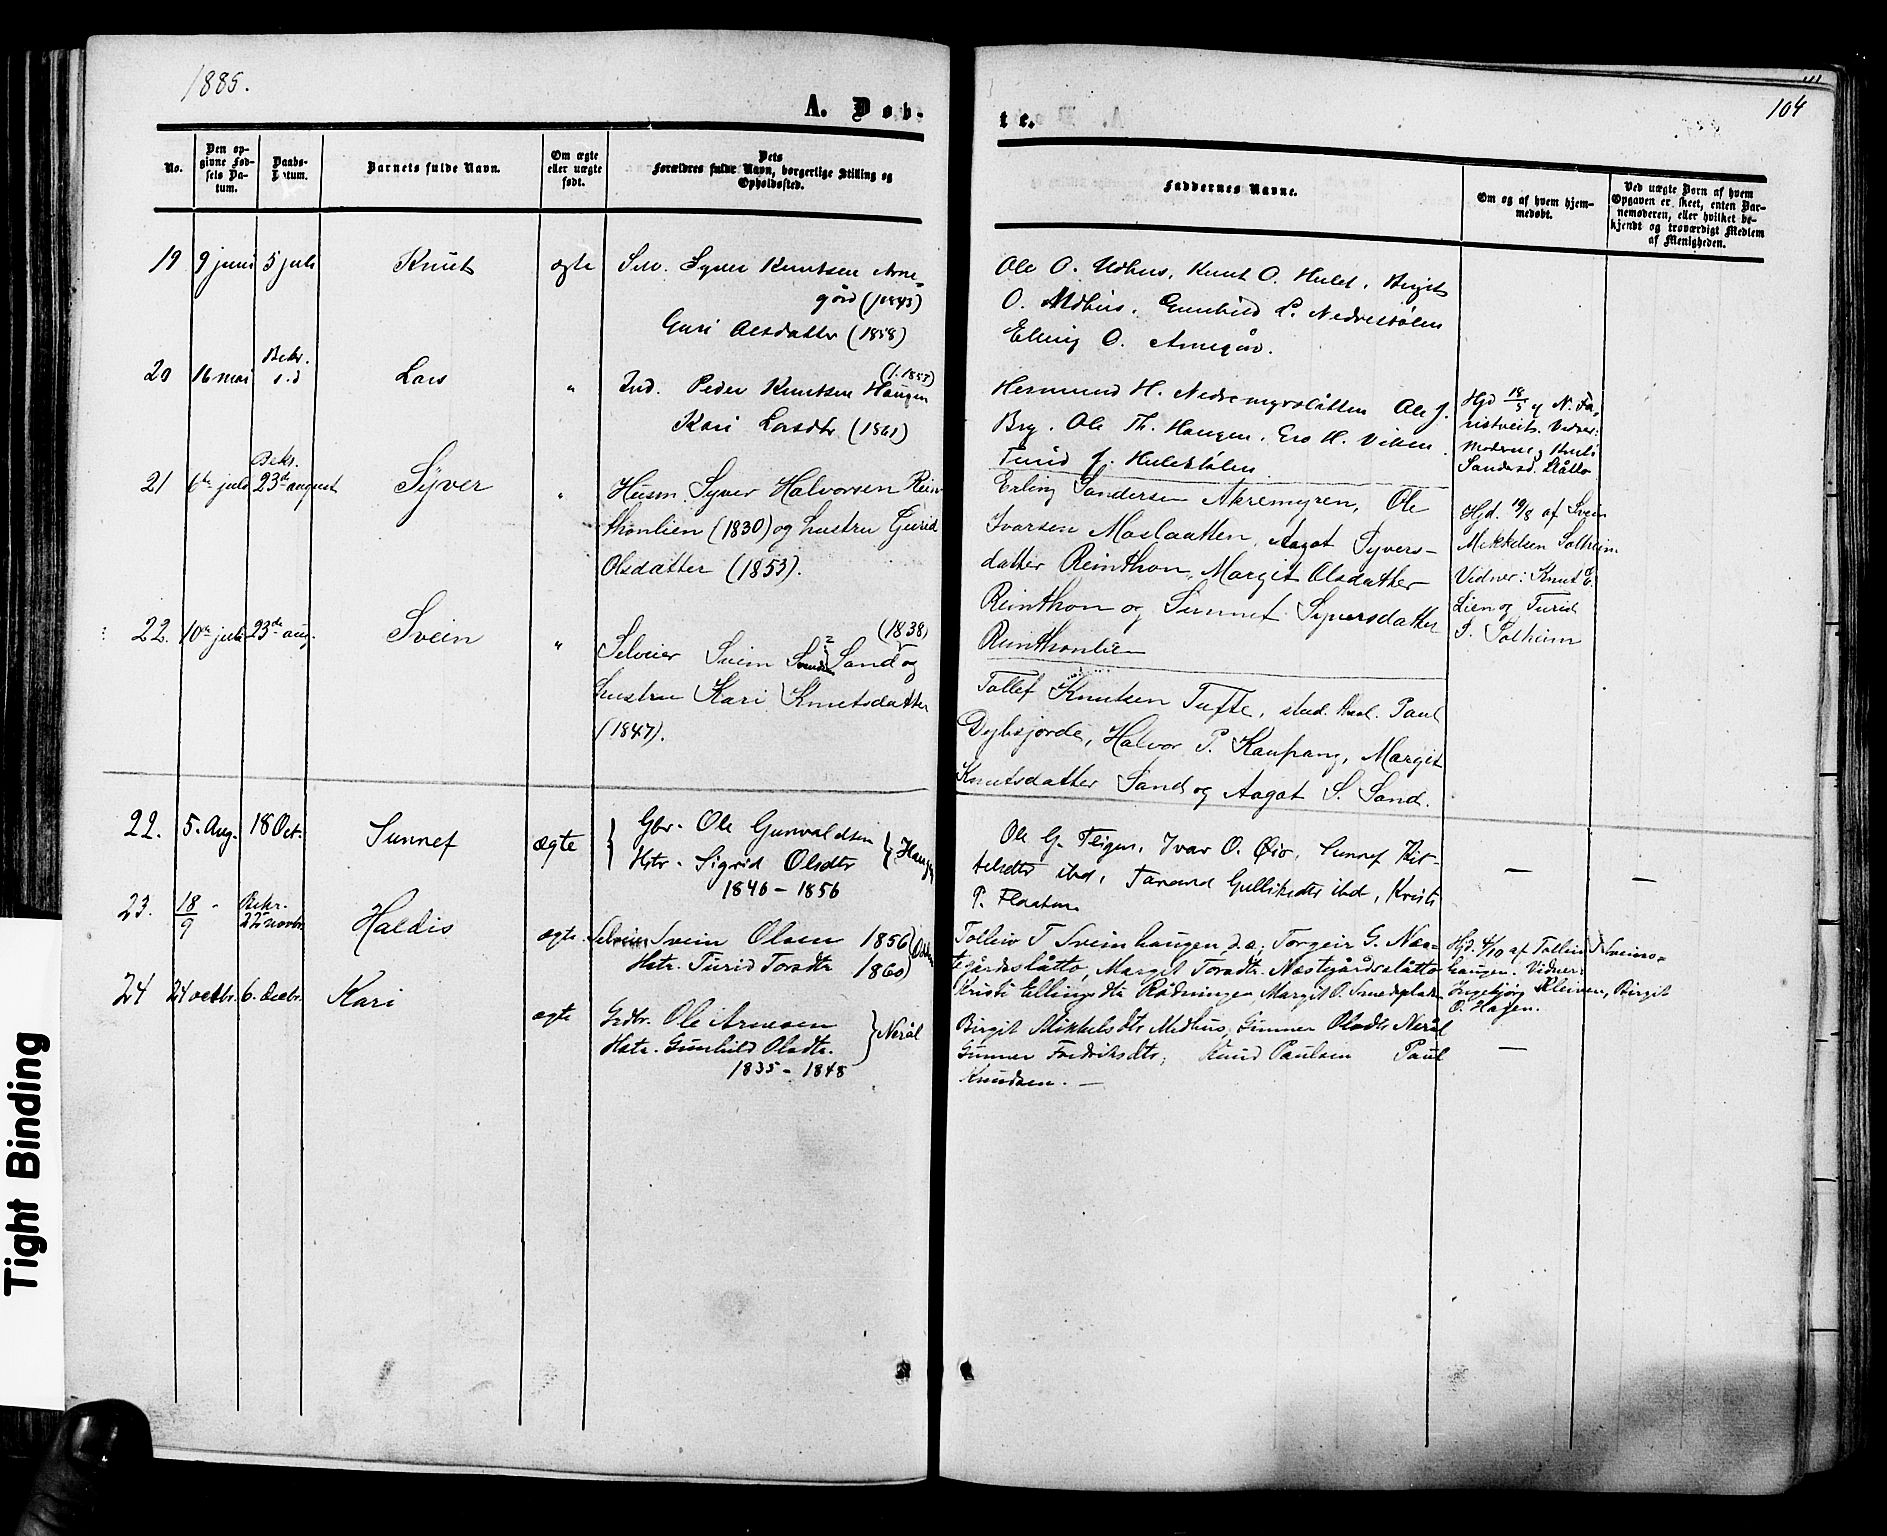 1885.
104
A. Døb-
te.
No.
Den op-
givne Fød-
sels Da-
tum.
Daabs-
Datum.
Barnets fulde Navn.
Om ægte
eller uægte
født.
Dets
Forældres fulde Navn, borgerlige Stilling og
Opholdssted.
Faddernes Navne.
Om og af hvem hjem-
medøbt.
Ved uægte Børn af hvem
Opgaven er skeet, enten Bar-
nemoderen, eller hvilket be-
kjendt og troværdigt Medlem
af Menigheden.
19 9 juni 5 juli Knut ægte Selv. Syver Knutsen Arne-
gård (f. 1843)
Guri Olsdatter (1858)
Ole O. Udhus, Knut O. Hulet, Birgit
O. Medhus, Gunhild L. Nedrestølen
Elling O. Arnegård.
20 16 mai Bekr.
s.d Lars " Ind. Peder Knutsen Haugen
(f. 1853)
Kari Larsdtr (1861)
Hermund H. Nedremyrslåtten Ole J.
Bry. Ole Th. Haugen. Gro H. Viken.
Turid J. Hulekstølen
Hjd 18/5 af N.
Vidner:
Moderen og
Sandersd. Slåtto
21 6te juli Bekr.
23de august Syver " Husm. Syver Halvorsen Rein-
thonlien (1830) og hustru Gurid
Olsdatter (1853).
Erling Sandersen Akremyren, Ole
Ivarsen Moslaatten, Aagot Syvers-
datter Reinthon, Margit Olsdatter
Reinthon og Sunnef Syversdatter
Reinthonlien
Hjd. 19/8 af Svein
Mekkelsen Solheim
Vidner: Knut E.
Lien og Turid
S. Solheim
22. 10de juli 23de aug. Svein " Selveier Svein Svendsen Sand og
(1838)
hustru Kari Knutsdatter
(1847).
Tollef Knutsen Tufte, stud. Paul
Dyksjorde, Halvor P. Kaupang, Margit
Knutsdatter Sand og Aagot S. Sand.
22. 5. Aug. 18 Oct. Sunnef ægte Gbr. Ole Gunvaldsen
Hstr. Sigrid Olsdtr
1840 - 1856
Ole G. Teigen, Ivar O. Øio, Sunnef Kit-
telsdtr ibd, Tarand Gulliksdtr ibd, Kristi
P. Flaaten
—
—
23. 18/9 Bekr.
22 novbr. Haldis ægte. Selveier Svein Olsen 1856
Hstr. Turid Torsdtr 1860
Tolleiv T Sveinhaugen d.æ; Torgeir G. Næs-
tegårdsslåtto, Margit Torsdtr. Næstegårdsslåtto
Kristi Ellingsdtr Rødningen, Margit O. Smedplads
Hjd. 4/10 af Tolleiv T. Sveins-
haugen. Vidner:
Ingebjørg Kleiven, Birgit
O. Hagen.
24 24 octbr. 6. decbr. Kari ægte Grdbr. Ole Arnesen
Hstr. Gunhild Olsdtr.
Nerål
1835 - 1848
Birgit Mikkelsdtr Medhus, Gunner Olsdtr Nerål
Gunner Fredriksdtr, Knud Paulsen Paul
Knudsen. —
—
Tight Binding